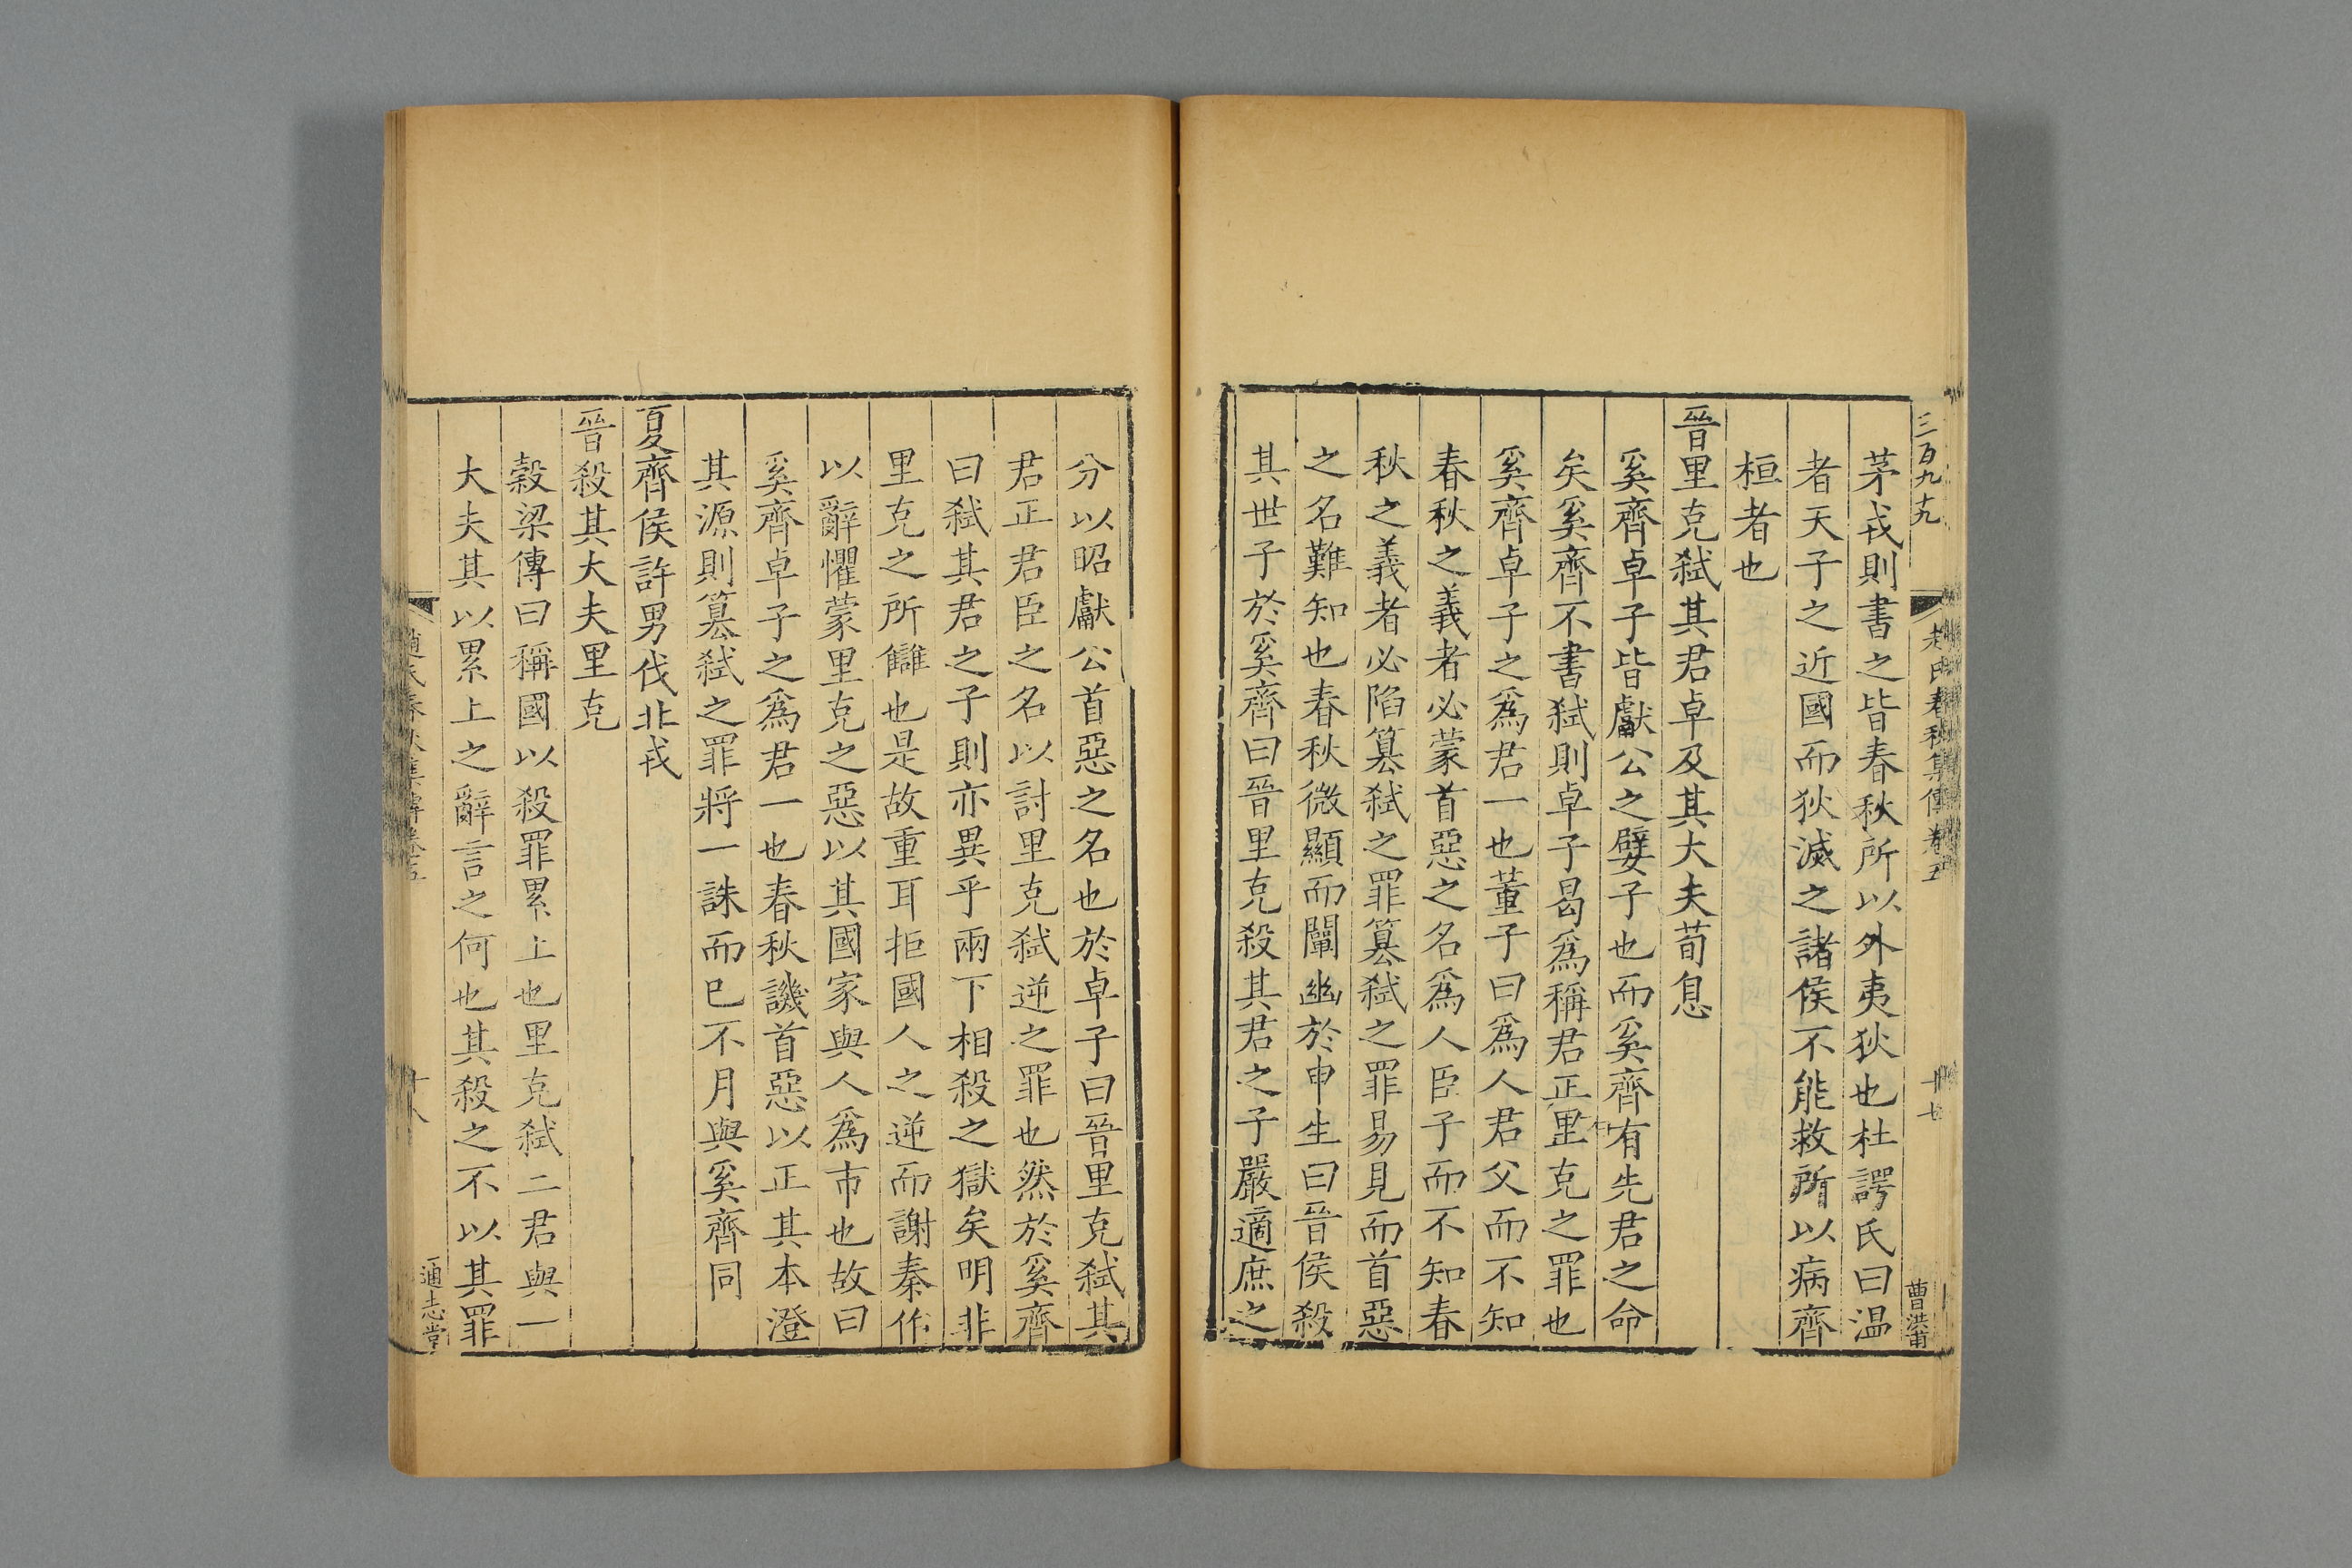 三百九十九
趙氏春秋集傳卷五
十七
曹洪甫
茅戎則書之皆春秋所以外夷狄也杜諤氏曰温
者天子之近國而狄滅之諸侯不能救所以病齊
桓者也
晉里克弑其君卓及其大夫荀息
奚齊卓子皆獻公之嬖子也而奚齊有先君之命
矣奚齊不書弑則卓子曷爲稱君正里克之罪也
奚齊卓子之爲君一也董子曰爲人君父而不知
春秋之義者必蒙首惡之名爲人臣子而不知春
秋之義者必陷篡弑之罪篡弑之罪易見而首惡
之名難知也春秋微顯而闡幽於申生曰晉侯殺
其世子於奚齊曰晉里克殺其君之子嚴適庶之
分以昭獻公首惡之名也於卓子曰晉里克弑其
君正君臣之名以討里克弑逆之罪也然於奚齊
曰弑其君之子則亦異乎兩下相殺之獄矣明非
里克之所讎也是故重耳拒國人之逆而謝秦作
以辭懼蒙里克之惡以其國家與人爲市也故曰
奚齊卓子之爲君一也春秋譏首惡以正其本澄
其源則篡弑之罪將一誅而已不月與奚齊同
夏齊侯許男伐北戎
晉殺其大夫里克
穀梁傳曰稱國以殺罪累上也里克弑二君與一
大夫其以累上之辭言之何也其殺之不以其罪
趙氏春秋集傳卷五
十八
通志堂